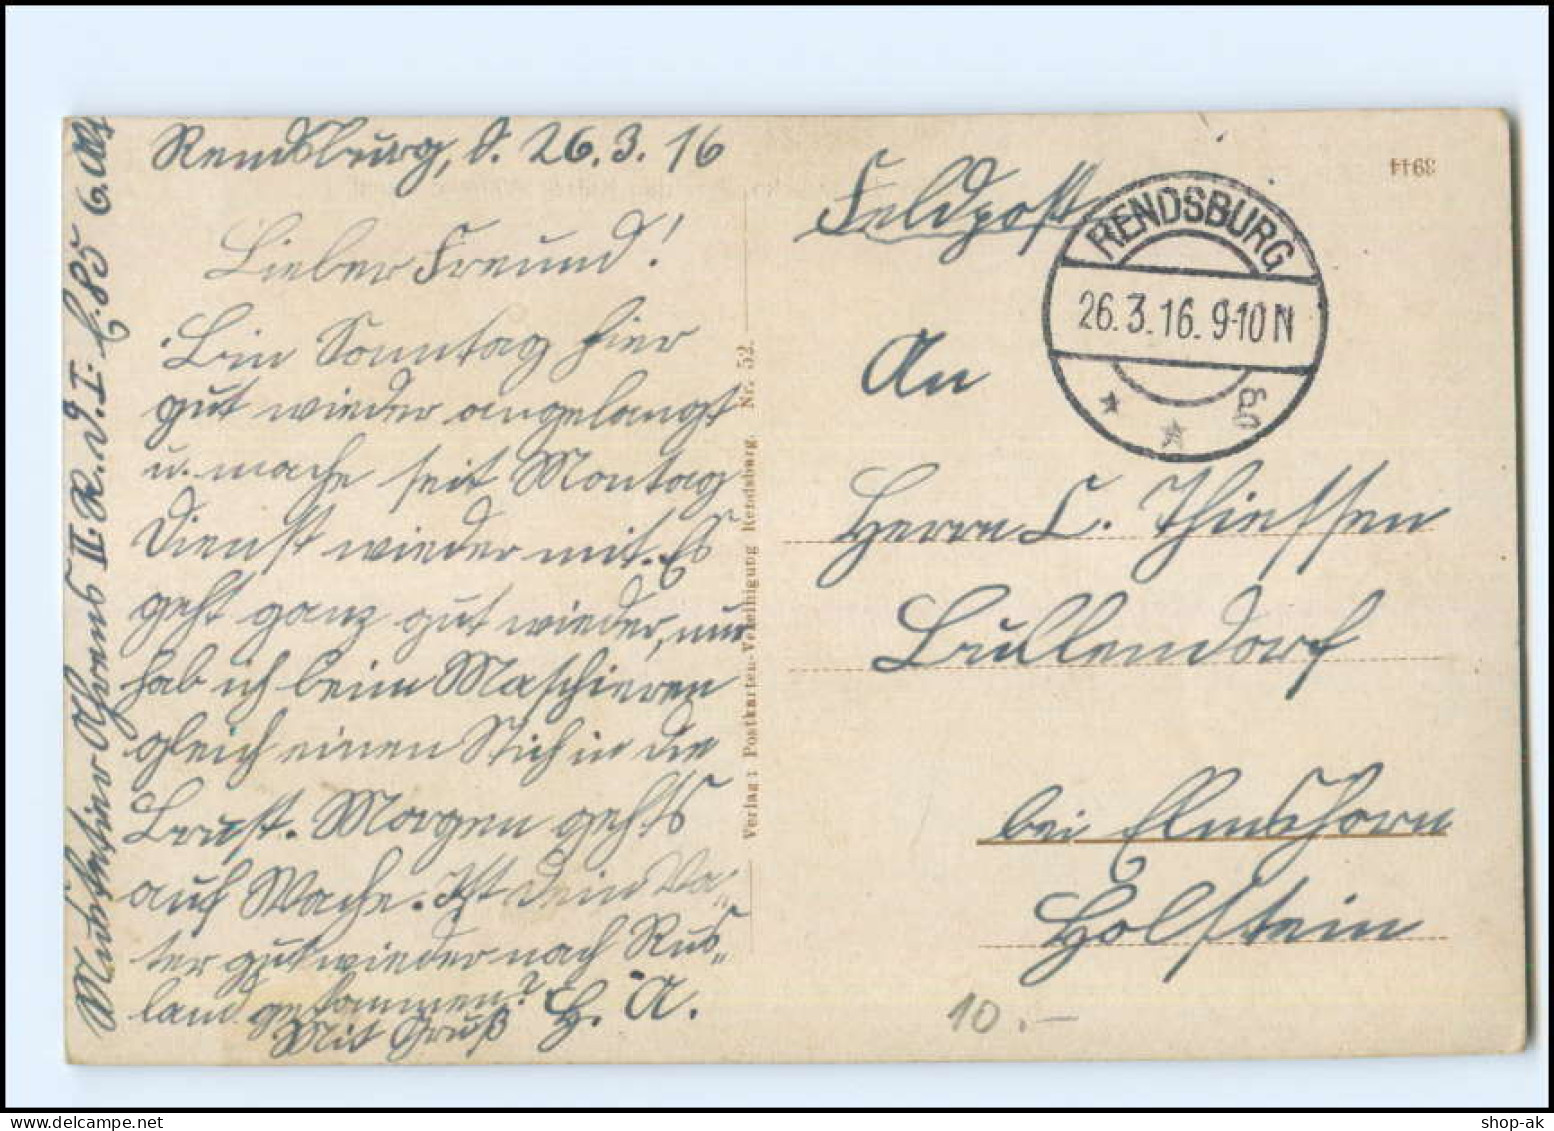 Rendsburg, d. 26.3.16
Lieber Freund!
Bin Sonntag hier
gut wieder angelangt
u. mache seit Montag
Dienst wieder mit. Es
geht ganz gut wieder, nur
hab ich beim Maschieren
gleich einen Stich in die
Brust. Morgen gehts
auf Wache. Ist dein Va-
ter gut wieder nach Rus-
land gekommen?
Mit Gruß H. A.
Musketier Ahrens II. R. D. I. 85 6.
Verlag: Postkarten-Vereinigung Rendsburg. Nr. 52.
Feldpost
3944
RENDSBURG
26.3.16.9-10N
An
Herrn C. Thiessen
Bullendorf
bei Elmshorn
Holstein
10.-
shop-ak